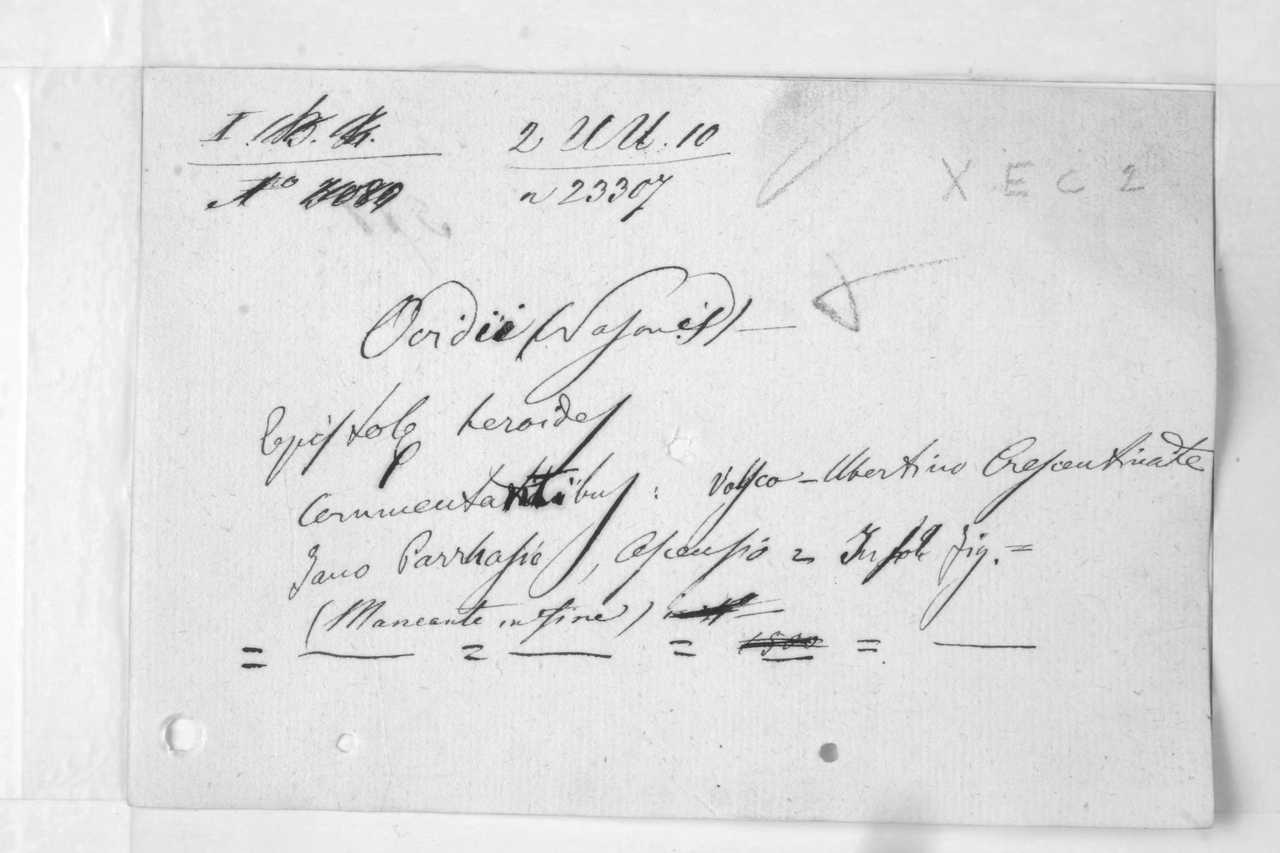 2 UU. 10
n 23307
X E C 2
Ovidii (Nasonis) —
Epistolę heroides
commentantibus : Volsco – Ubertino Crescentinate
Jano Parrhasio, Ascensio = In fol. fig. =
(Mancante in fine)
= — = — = 1500 = —